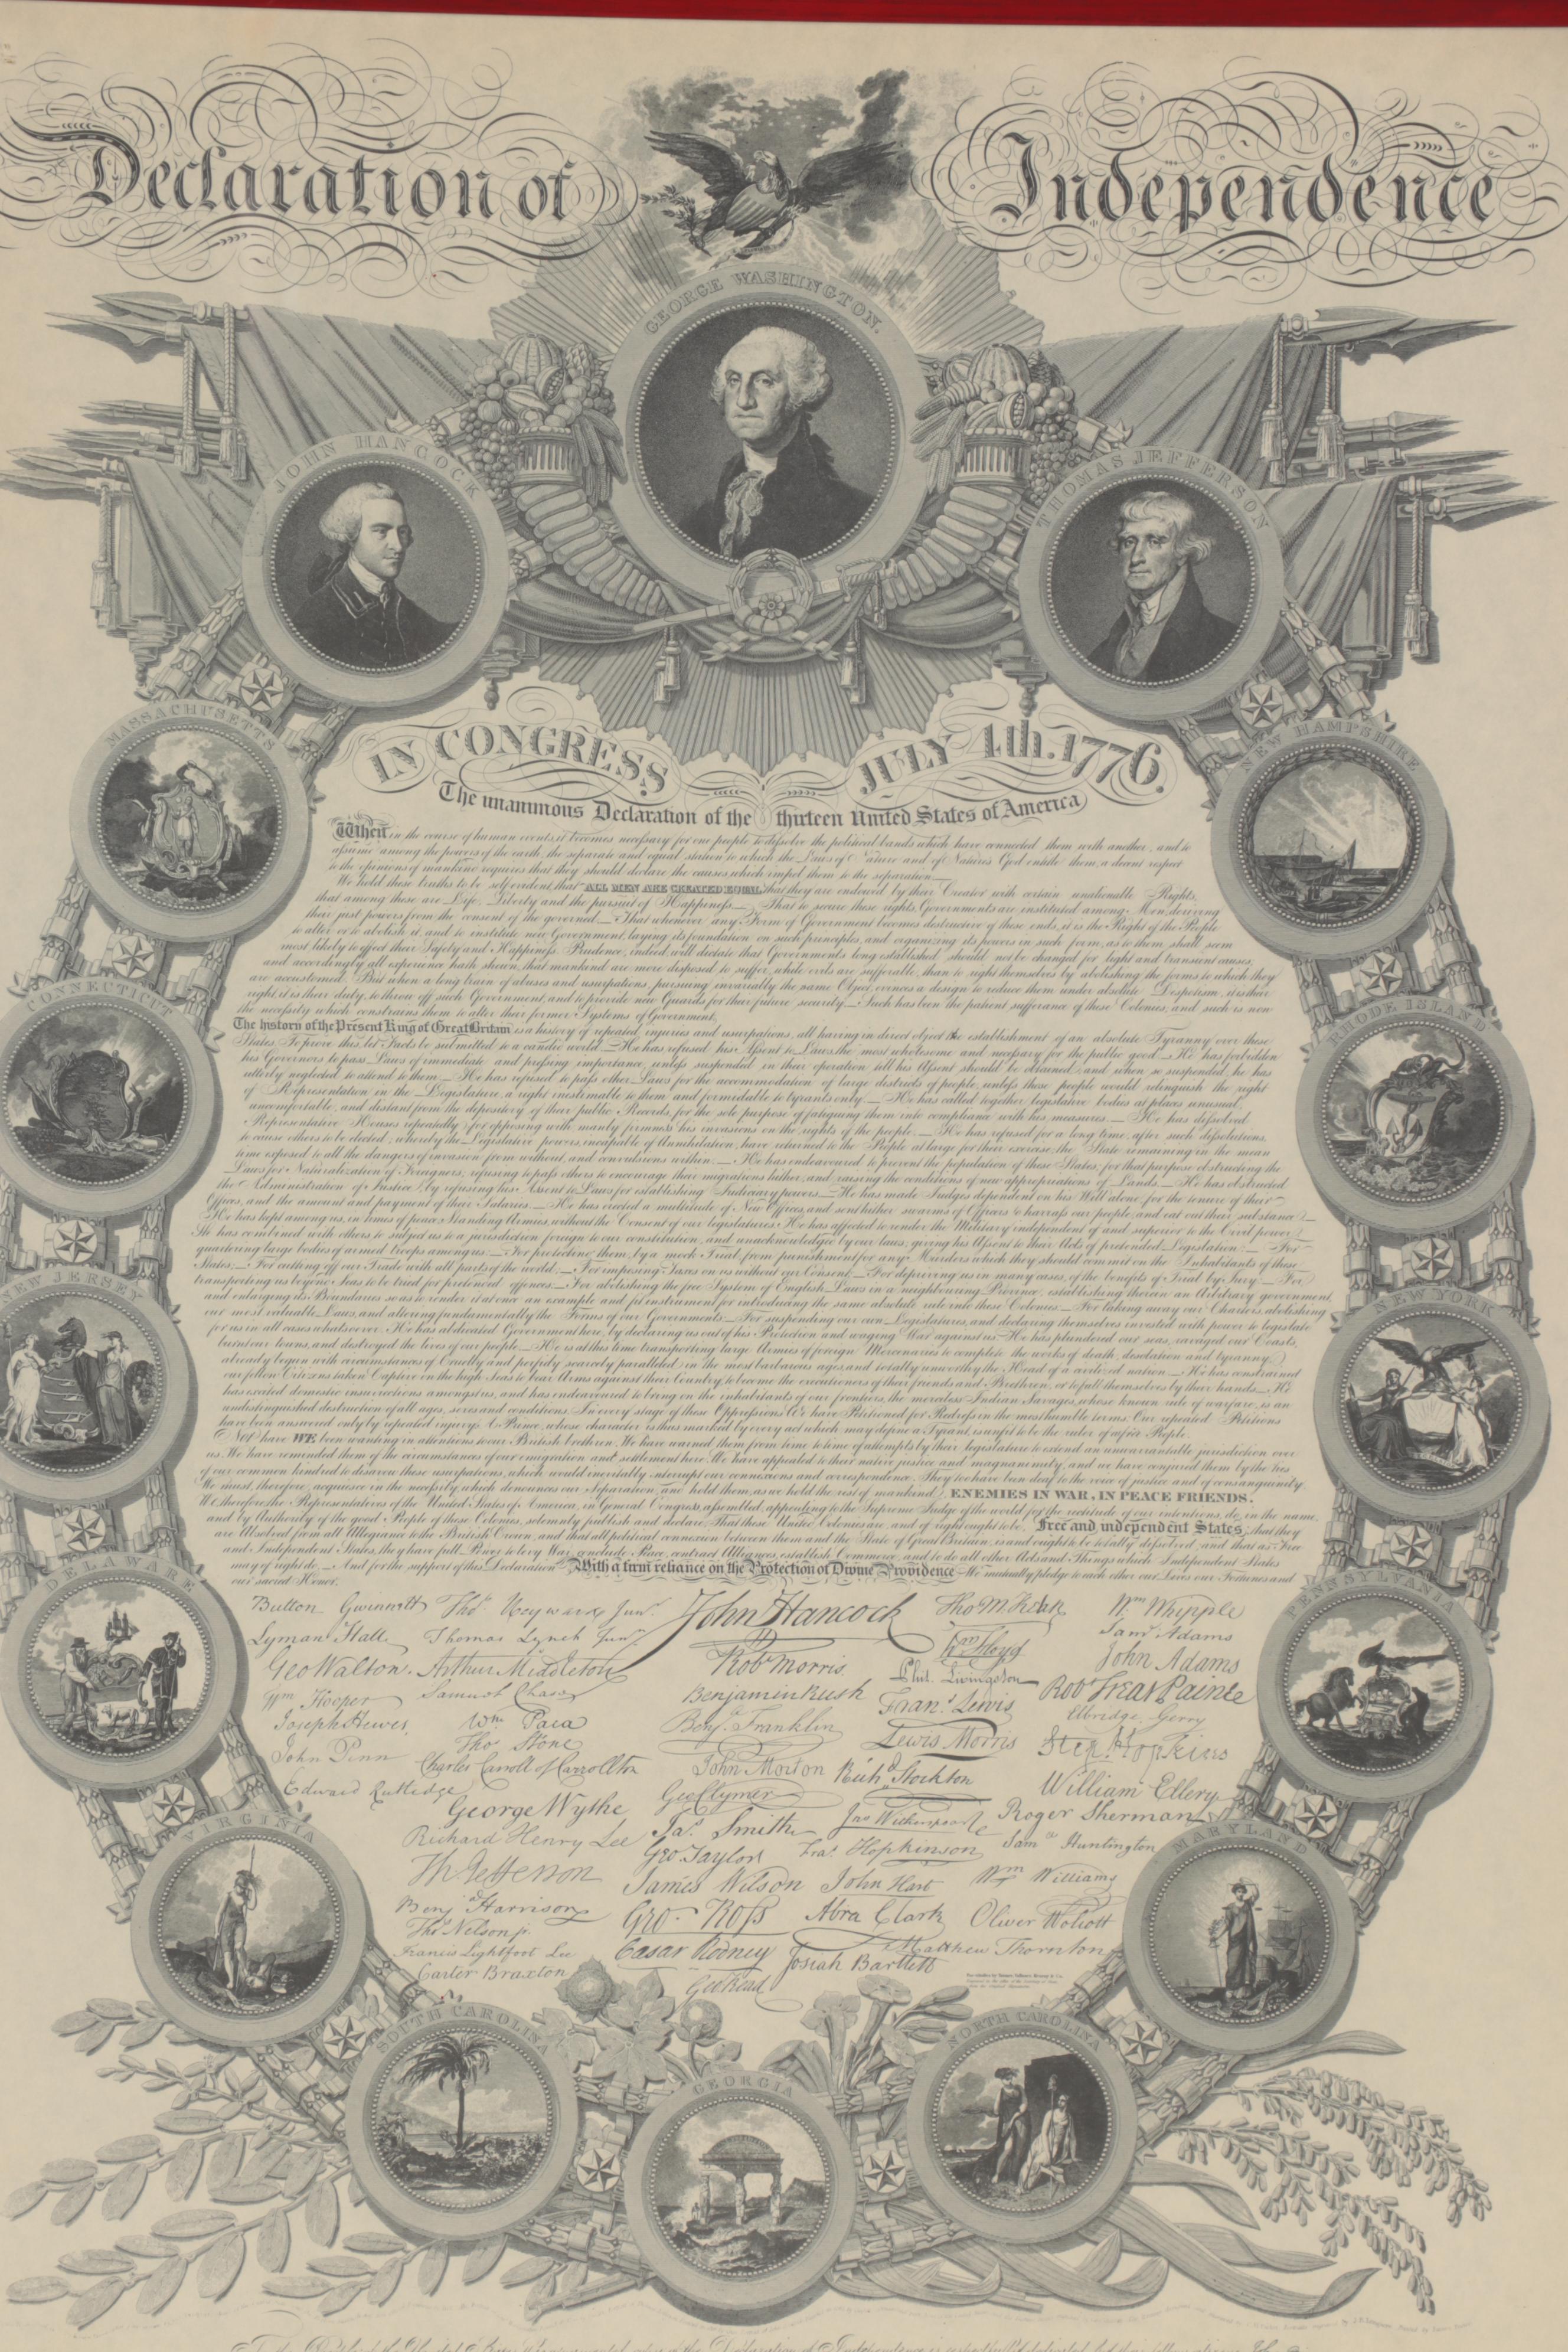 Declaration of Independence
GEORGE WASHINGTON.
JOHN HANCOCK
THOMAS JEFFERSON
IN CONGRESS JULY 4th. 1776.
The unanimous Declaration of the thirteen United States of America
When in the course of human events, it becomes necessary for one people to dissolve the political bands which have connected them with another, and to
assume among the powers of the earth, the separate and equal station to which the Laws of Nature and of Nature's God entitle them, a decent respect
to the opinions of mankind requires that they should declare the causes which impel them to the separation.—
We hold these truths to be self evident, that ALL MEN ARE CREATED EQUAL, that they are endowed by their Creator with certain unalienable Rights,
that among these are Life, Liberty and the pursuit of Happiness.— That to secure these rights, Governments are instituted among Men, deriving
their just powers from the consent of the governed.— That whenever any Form of Government becomes destructive of these ends, it is the Right of the People
to alter or to abolish it, and to institute new Government, laying its foundation on such principles, and organizing its powers in such form, as to them shall seem
most likely to effect their Safety and Happiness. Prudence, indeed, will dictate that Governments long established should not be changed for light and transient causes,
and accordingly all experience hath shewn, that mankind are more disposed to suffer, while evils are sufferable, than to right themselves by abolishing the forms to which they
are accustomed. But when a long train of abuses and usurpations, pursuing invariably the same Object, evinces a design to reduce them under absolute Despotism, it is their
right, it is their duty, to throw off such Government, and to provide new Guards for their future security.— Such has been the patient sufferance of these Colonies, and such is now
the necessity which constrains them to alter their former Systems of Government.
The history of the Present King of Great Britain is a history of repeated injuries and usurpations, all having in direct object the establishment of an absolute Tyranny over these
States. To prove this, let Facts be submitted to a candid world.— He has refused his Assent to Laws, the most wholesome and necessary for the public good.— He has forbidden
his Governors to pass Laws of immediate and pressing importance, unless suspended in their operation till his Assent should be obtained, and when so suspended, he has
utterly neglected to attend to them.— He has refused to pass other Laws for the accommodation of large districts of people, unless those people would relinquish the right
of Representation in the Legislature, a right inestimable to them and formidable to tyrants only.— He has called together legislative bodies at places unusual,
uncomfortable, and distant from the depository of their public Records, for the sole purpose of fatiguing them into compliance with his measures.— He has dissolved
Representative Houses repeatedly, for opposing with manly firmness his invasions on the rights of the people.— He has refused for a long time, after such dissolutions,
to cause others to be elected; whereby the Legislative powers, incapable of Annihilation, have returned to the People at large for their exercise, the State remaining in the mean
time exposed to all the dangers of invasion from without, and convulsions within.— He has endeavoured to prevent the population of these States, for that purpose obstructing the
Laws for Naturalization of Foreigners, refusing to pass others to encourage their migrations hither, and raising the conditions of new appropriations of Lands.— He has obstructed
the Administration of Justice, by refusing his Assent to Laws for establishing Judiciary powers.— He has made Judges dependent on his Will alone, for the tenure of their
Offices, and the amount and payment of their Salaries.— He has erected a multitude of New Offices, and sent hither swarms of Officers to harrass our people, and eat out their substance.—
He has kept among us, in times of peace, Standing Armies, without the Consent of our legislatures. He has affected to render the Military independent of and superior to the Civil power.
He has combined with others to subject us to a jurisdiction foreign to our constitution, and unacknowledged by our laws; giving his Assent to their Acts of pretended Legislation:— For
quartering large bodies of armed troops among us:— For protecting them, by a mock Trial, from punishment for any Murders which they should commit on the Inhabitants of these
States:— For cutting off our Trade with all parts of the world:— For imposing Taxes on us without our Consent:— For depriving us in many cases, of the benefits of Trial by Jury:— For
transporting us beyond Seas to be tried for pretended offences:— For abolishing the free System of English Laws in a neighbouring Province, establishing therein an Arbitrary government,
and enlarging its Boundaries so as to render it at once an example and fit instrument for introducing the same absolute rule into these Colonies:— For taking away our Charters, abolishing
our most valuable Laws, and altering fundamentally the Forms of our Governments:— For suspending our own Legislatures, and declaring themselves invested with power to legislate
for us in all cases whatsoever. He has abdicated Government here, by declaring us out of his Protection and waging War against us. He has plundered our seas, ravaged our Coasts,
burnt our towns, and destroyed the lives of our people.— He is at this time transporting large Armies of foreign Mercenaries to complete the works of death, desolation and tyranny,
already begun with circumstances of Cruelty and perfidy scarcely paralleled in the most barbarous ages, and totally unworthy the Head of a civilized nation.— He has constrained
our fellow Citizens taken Captive on the high Seas to bear Arms against their Country, to become the executioners of their friends and Brethren, or to fall themselves by their hands.— He
has excited domestic insurrections amongst us, and has endeavoured to bring on the inhabitants of our frontiers, the merciless Indian Savages, whose known rule of warfare, is an
undistinguished destruction of all ages, sexes and conditions. In every stage of these Oppressions We have Petitioned for Redress in the most humble terms: Our repeated Petitions
have been answered only by repeated injury. A Prince, whose character is thus marked by every act which may define a Tyrant, is unfit to be the ruler of a free People.
Nor have WE been wanting in attentions to our British brethren. We have warned them from time to time of attempts by their legislature to extend an unwarrantable jurisdiction over
us. We have reminded them of the circumstances of our emigration and settlement here. We have appealed to their native justice and magnanimity, and we have conjured them by the ties
of our common kindred to disavow these usurpations, which would inevitably interrupt our connexions and correspondence. They too have been deaf to the voice of justice and of consanguinity.
We must, therefore, acquiesce in the necessity, which denounces our Separation, and hold them, as we hold the rest of mankind, ENEMIES IN WAR, IN PEACE FRIENDS.
We, therefore, the Representatives of the United States of America, in General Congress, assembled, appealing to the Supreme Judge of the world for the rectitude of our intentions, do, in the name,
and by Authority of the good People of these Colonies, solemnly publish and declare, That these United Colonies are, and of right ought to be, Free and independent States; that they
are Absolved from all Allegiance to the British Crown, and that all political connexion between them and the State of Great Britain, is and ought to be totally dissolved; and that as Free
and Independent States, they have full Power to levy War, conclude Peace, contract Alliances, establish Commerce, and to do all other Acts and Things which Independent States
may of right do.— And for the support of this Declaration With a firm reliance on the Protection of Divine Providence We mutually pledge to each other our Lives our Fortunes and
our sacred Honor.
Button Gwinnett
Lyman Hall
Geo Walton.
Wm Hooper
Joseph Hewes,
John Penn
Edward Rutledge
Thos. Heyward Junr.
Thomas Lynch Junr.
Arthur Middleton
Samuel Chase
Wm. Paca
Thos Stone
Charles Carroll of Carrollton
George Wythe
Richard Henry Lee
Th Jefferson
Benja Harrison
Thos Nelson jr.
Francis Lightfoot Lee
Carter Braxton
John Hancock
Robt Morris
Benjamin Rush
Benja. Franklin
John Morton
Geo Clymer
Jas. Smith
Geo Taylor
James Wilson
Geo. Ross
Caesar Rodney
Geo Read
Tho M:Kean
Wm Floyd
Phil. Livingston
Frans. Lewis
Lewis Morris
Richd Stockton
Jno Witherspoon
Fras. Hopkinson
John Hart
Abra Clark
Josiah Bartlett
Wm Whipple
Saml Adams
John Adams
Robt Treat Paine
Elbridge Gerry
Step. Hopkins
William Ellery
Roger Sherman
Saml Huntington
Wm Williams
Oliver Wolcott
Matthew Thornton
MASSACHUSETTS
CONNECTICUT
NEW JERSEY
DELAWARE
VIRGINIA
SOUTH CAROLINA
GEORGIA
NORTH CAROLINA
MARYLAND
PENNSYLVANIA
NEW YORK
RHODE ISLAND
NEW HAMPSHIRE